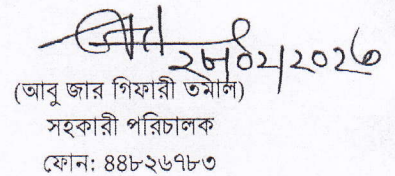 ২৮/০২/২০২৬
(আবু জার গিফারী তমাল)
সহকারী পরিচালক
ফোন: ৪৪৮২৬৭৮৩